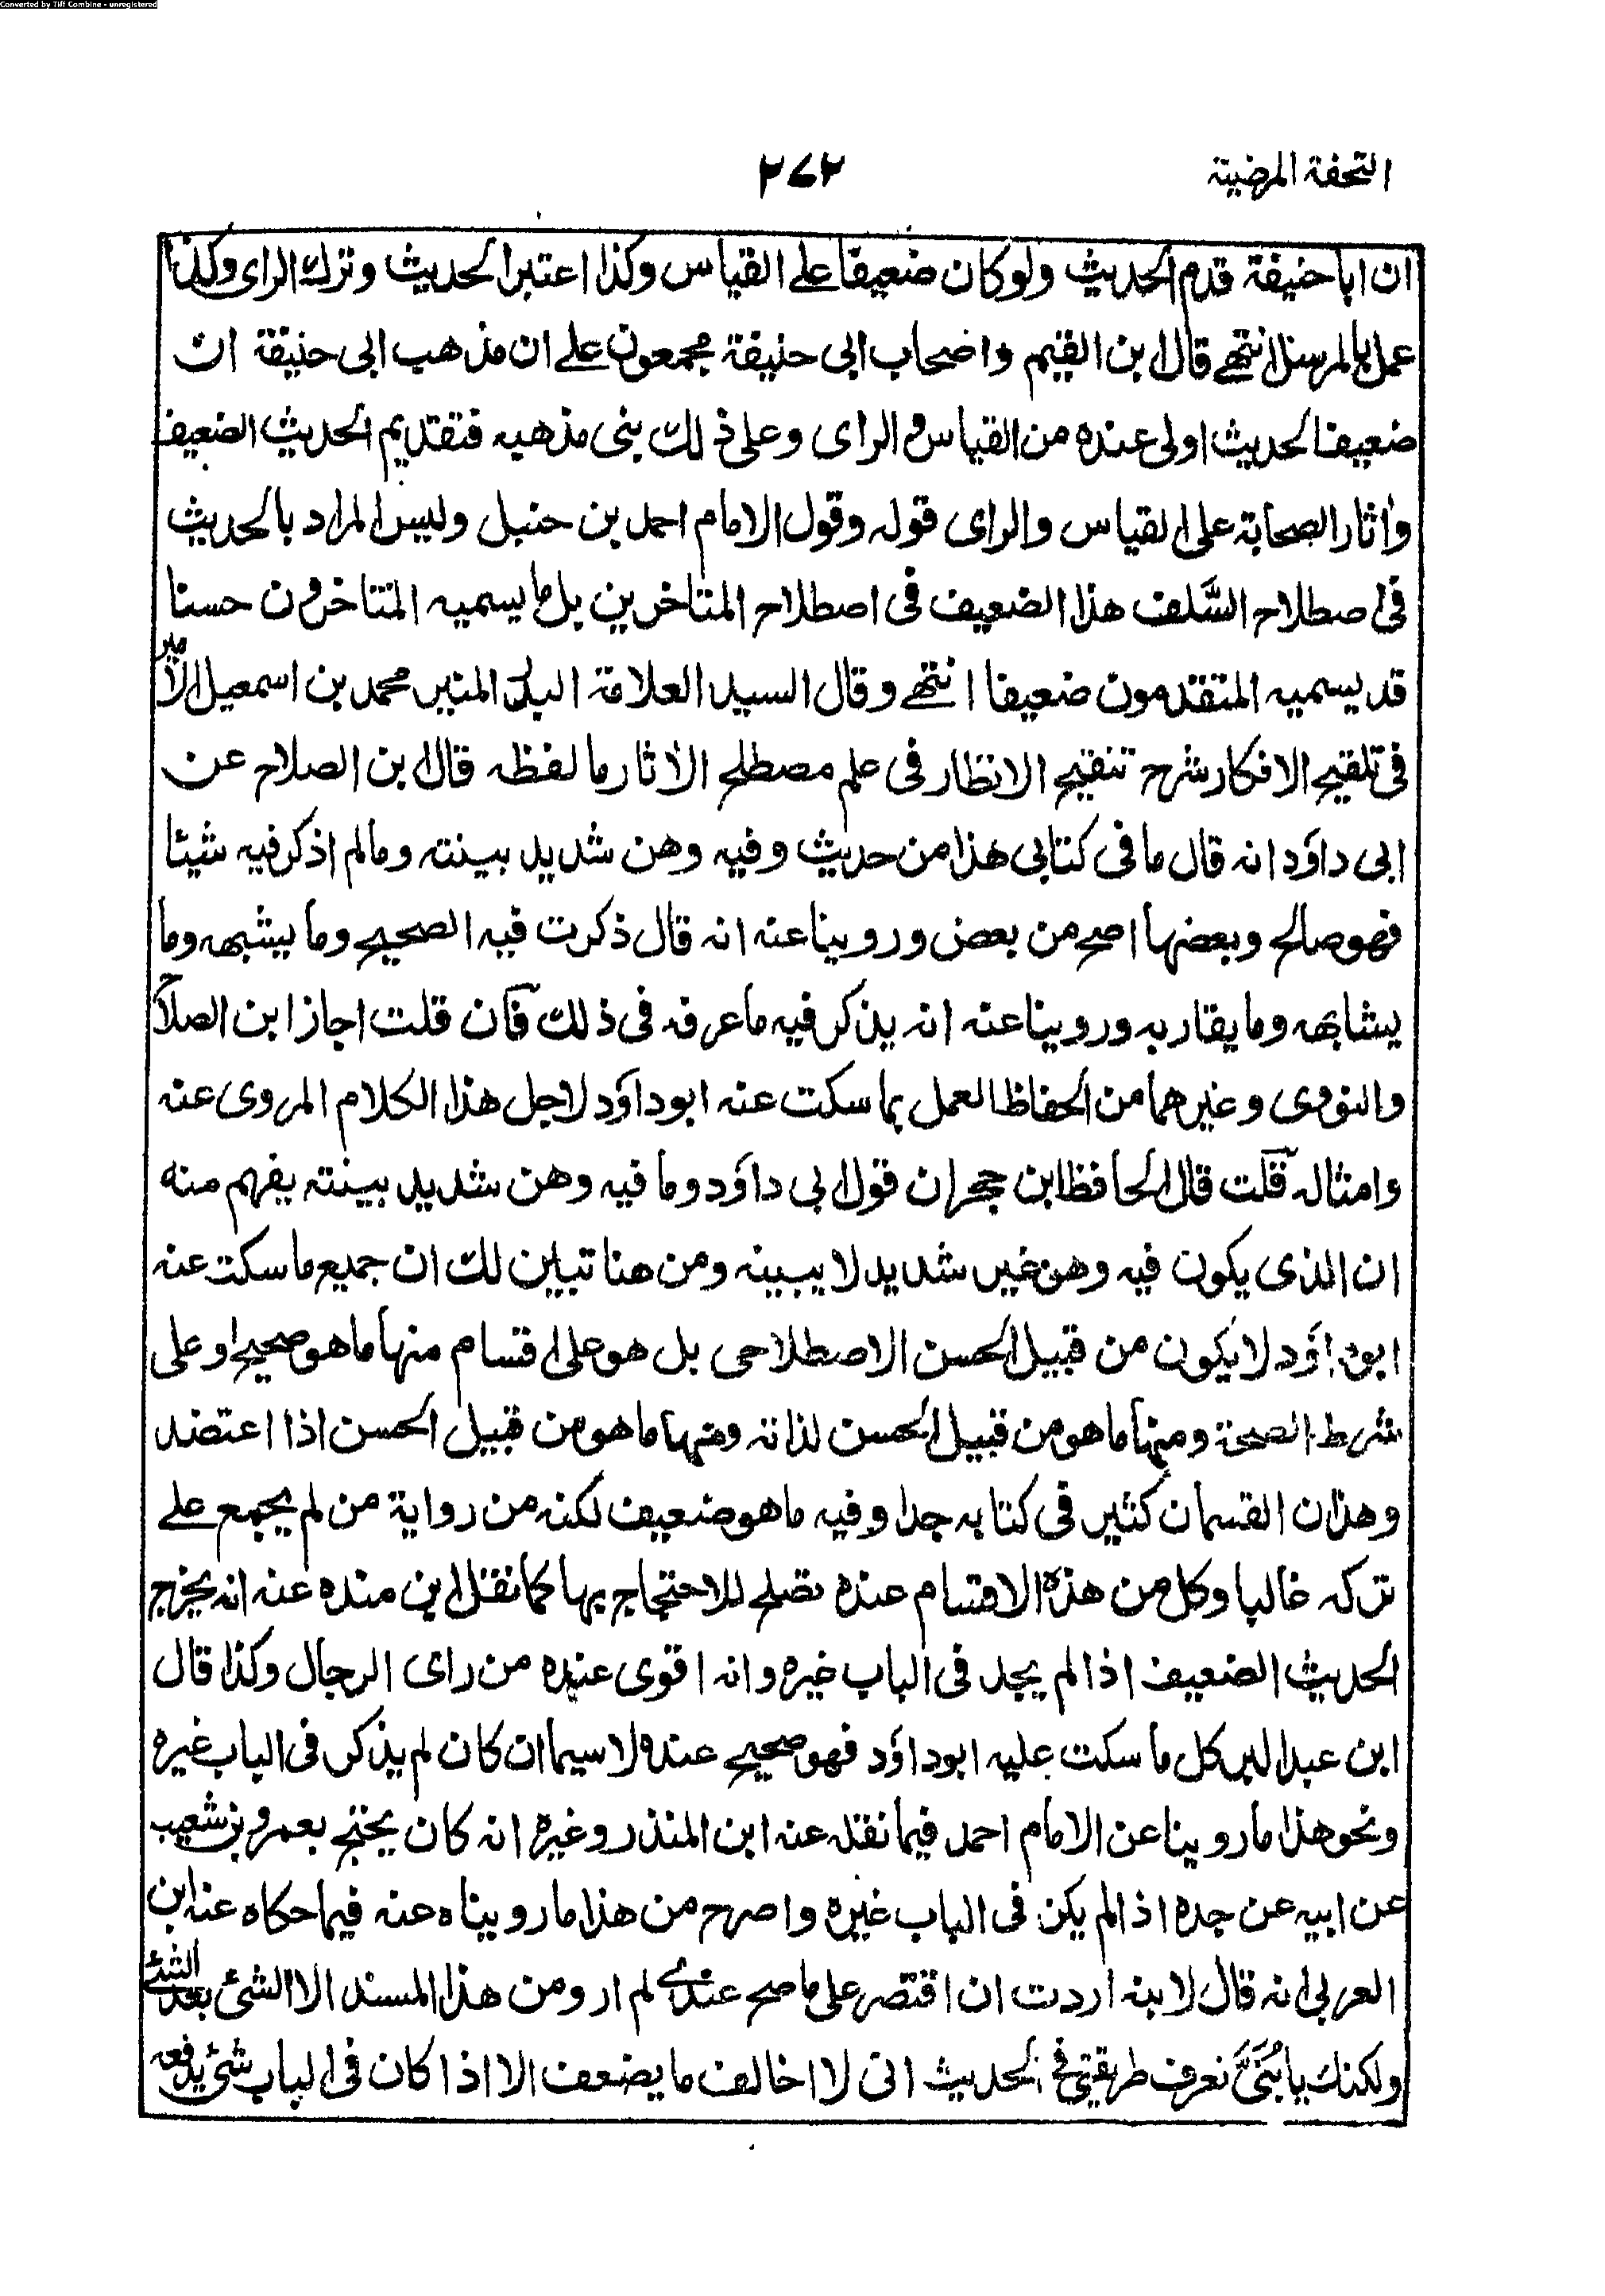 Converted by Tiff Combine - unregistered
التحفة المرضية
٢٧٢
ان ابا حنيفة قدم الحديث ولو كان ضعيفا على القياس وكذا اعتبر الحديث وترك الراى وكذا
عمل بالمرسل انتهے قال ابن القيم واصحاب ابى حنيفة مجمعون علے ان مذهب ابى حنيفة ان
ضعيف الحديث اولى عنده من القياس و الراى وعلى ذلك بنى مذهبه فتقديم الحديث الضعيف
واثار الصحابة على القياس والراى قوله وقول الامام احمد بن حنبل وليس المراد بالحديث
فى اصطلاح السَّلف هذا الضعيف فى اصطلاح المتاخرين بل ما يسميه المتاخرون حسنا
قد يسميه المتقدمون ضعيفا انتهے وقال السيد العلامة البدر المنير محمد بن اسمعيل الامير
فى تلقيح الافكار شرح تنقيح الانظار فى علم مصطلح الاثار ما لفظه قال ابن الصلاح عن
ابى داؤد انه قال ما فى كتابى هذا من حديث وفيه وهن شديد بينته ومالم اذكر فيه شيئا
فهو صالح وبعضها اصح من بعض وروينا عنه انه قال ذكرت فيه الصحيح وما يشبهه وما
يشابهه وما يقاربه وروينا عنه انه يذكر فيه ما عرفه فى ذلك فان قلت اجاز ابن الصلاح
والنووى وغيرهما من الحفاظ العمل بما سكت عنه ابو داؤد لاجل هذا الكلام المروى عنه
وامثاله قلت قال الحافظ ابن حجر ان قول ابى داؤد وما فيه وهن شديد بينته يفهم منه
ان الذى يكون فيه وهن غير شديد لا يبينه ومن هنا تباين لك ان جميع ما سكت عنه
ابو داؤد لا يكون من قبيل الحسن الاصطلاحى بل هو على اقسام منها ما هو صحيح او على
شرط الصحة ومنها ما هو من قبيل الحسن لذاته ومنها ما هو من قبيل الحسن اذا اعتضد
وهذان القسمان كثير فى كتابه جدا وفيه ما هو ضعيف لكنه من رواية من لم يجمع علے
تركه غالبا وكل من هذه الاقسام عنده تصلح للاحتجاج بها كما نقل ابن منده عنه انه يخرج
الحديث الضعيف اذا لم يجد فى الباب غيره وانه اقوى عنده من راى الرجال وكذا قال
ابن عبد البر كل ما سكت عليه ابو داؤد فهو صحيح عنده لا سيما ان كان لم يذكر فى الباب غيره
ونحو هذا ما روينا عن الامام احمد فيما نقله عنه ابن المنذر وغيره انه كان يحتج بعمرو بن شعيب
عن ابيه عن جده اذا لم يكن فى الباب غيره واصرح من هذا ما رويناه عنه فيما حكاه عنه ابن
العربى انه قال لابنه اردت ان اقتصر على ما صح عندے لم ارو من هذا المسند الا الشئ بعد الشئے
ولكنك يا بُنَىَّ تعرف طريقتى فى الحديث انى لا اخالف ما يضعف الا اذا كان فى الباب شئ يدفعه